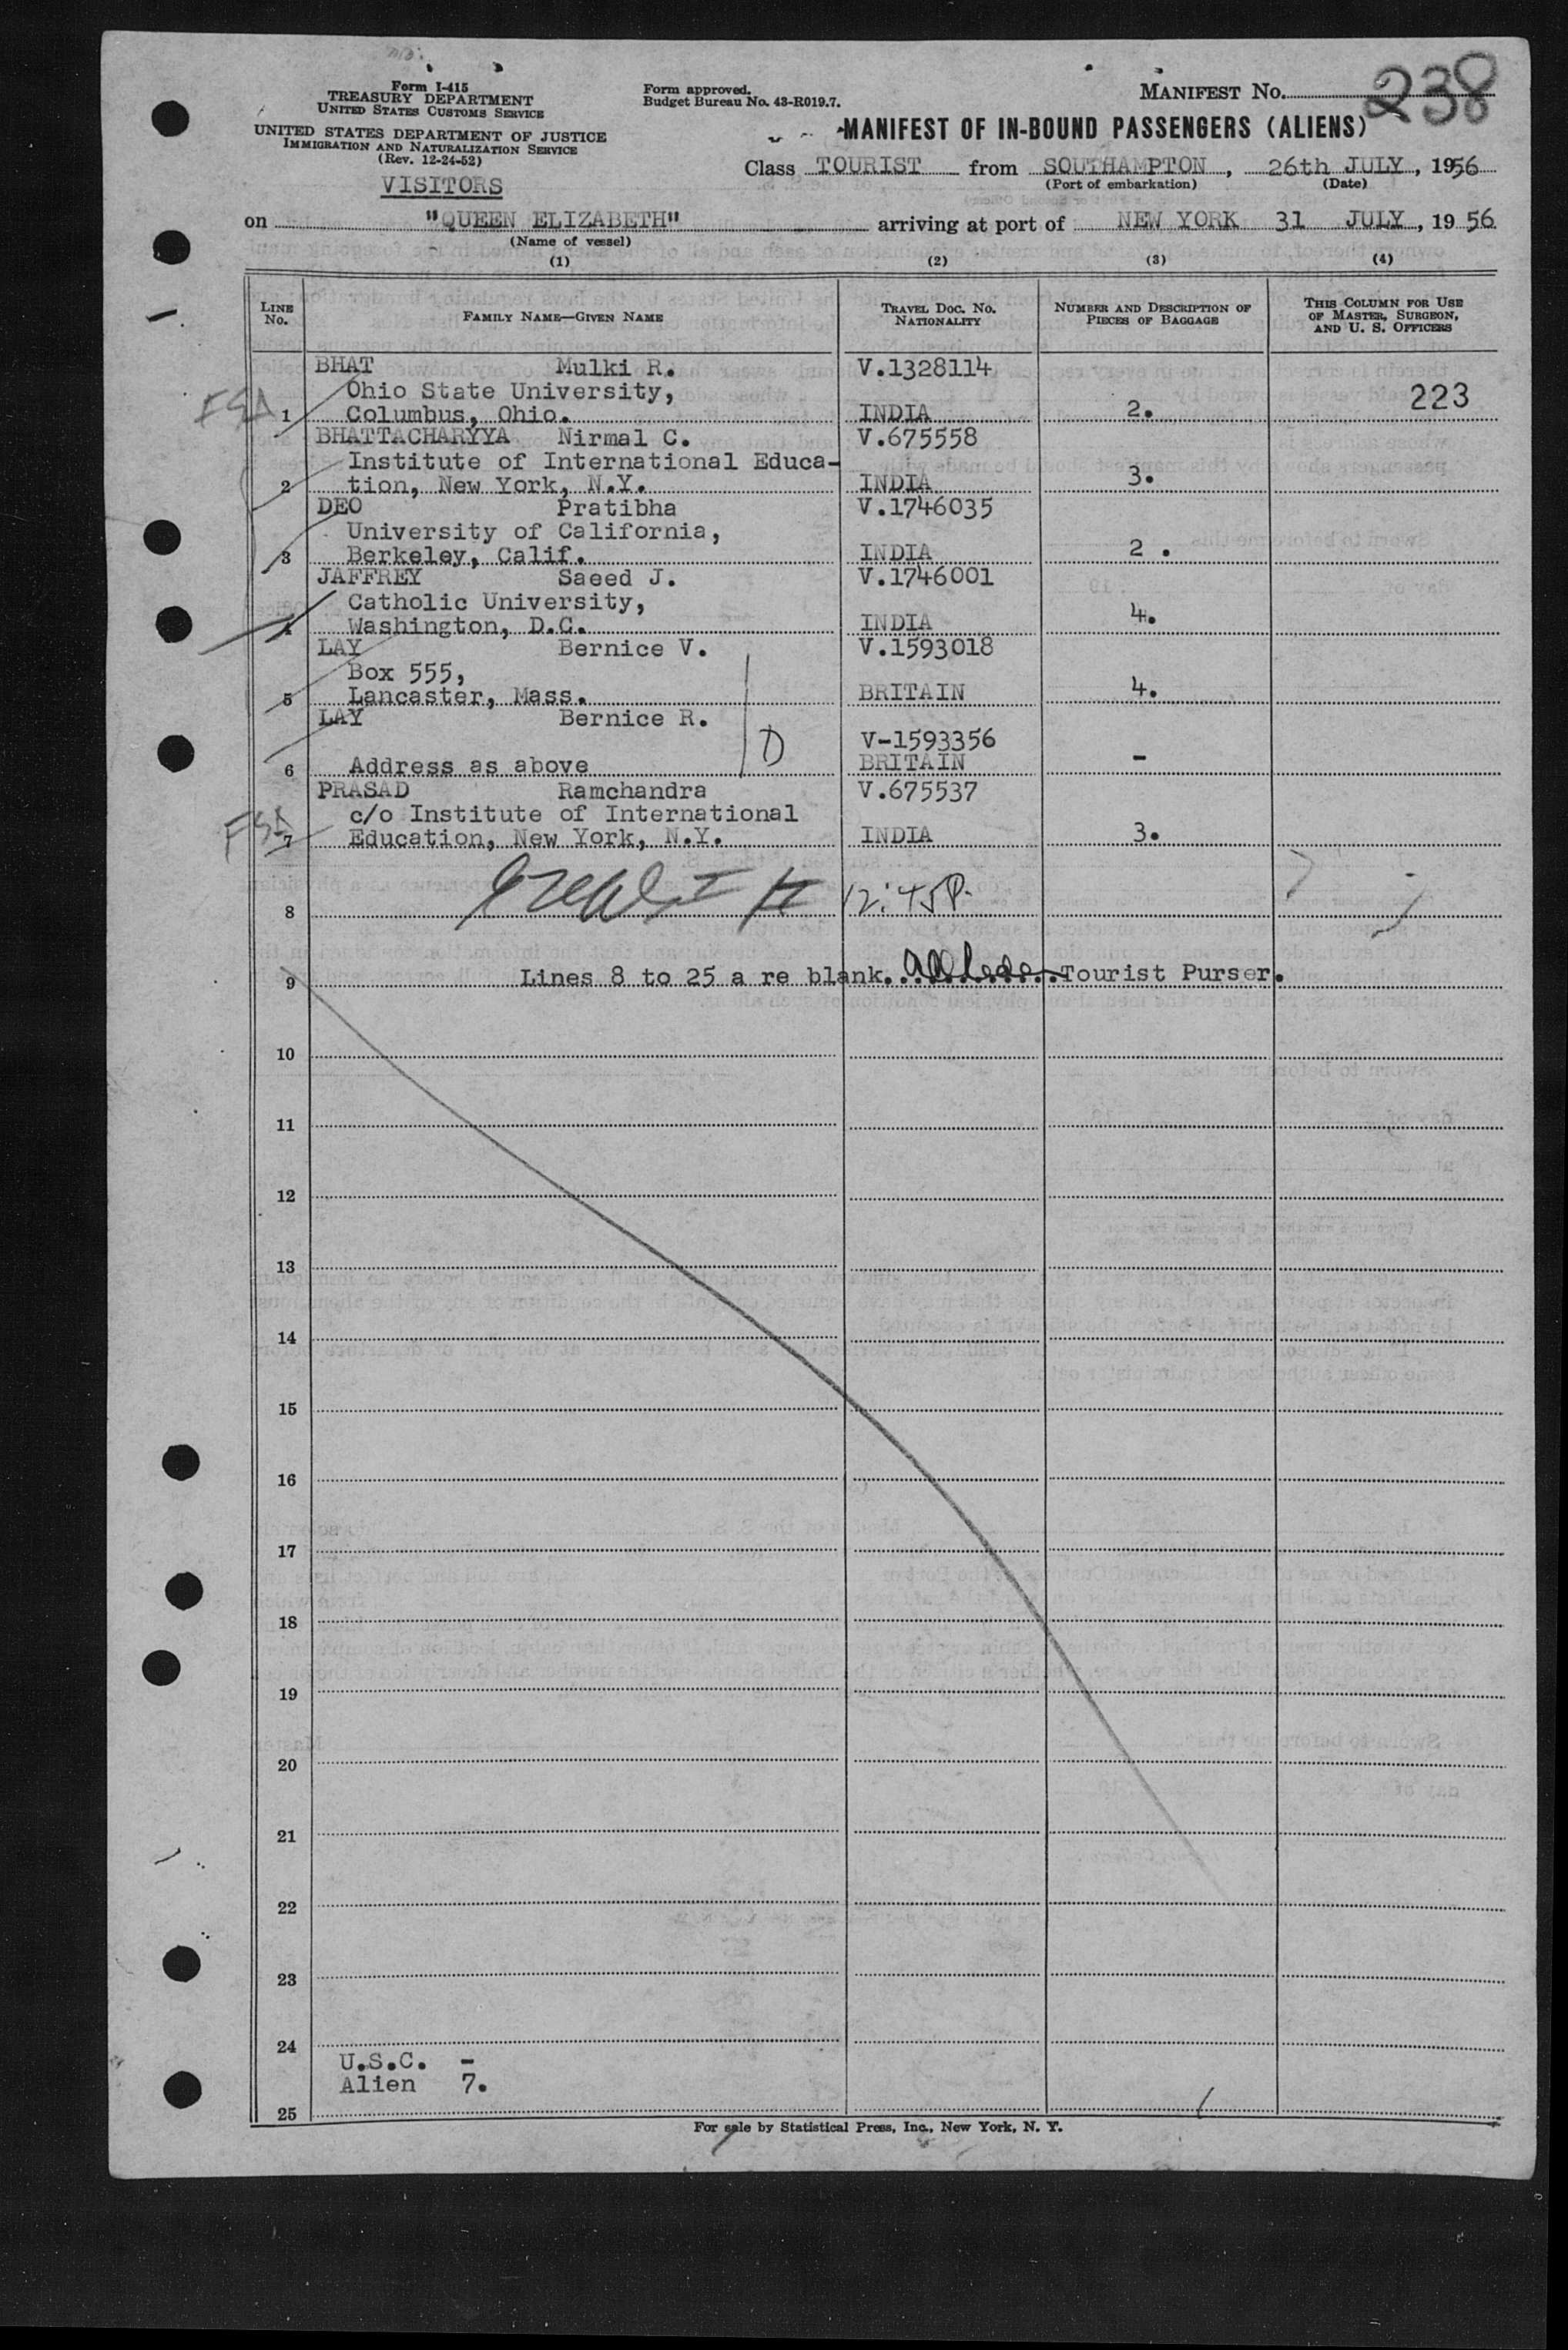 Form I-415
TREASURY DEPARTMENT
UNITED STATES CUSTOMS SERVICE
UNITED STATES DEPARTMENT OF JUSTICE
IMMIGRATION AND NATURALIZATION SERVICE
(Rev. 12-24-52)
VISITORS
Form approved.
Budget Bureau No. 43-R019.7.
MANIFEST No. 238
MANIFEST OF IN-BOUND PASSENGERS (ALIENS)
Class TOURIST from SOUTHAMPTON, 26th JULY, 1956
(Port of embarkation) (Date)
on "QUEEN ELIZABETH" arriving at port of NEW YORK 31 JULY, 1956
(Name of vessel)
(1) (2) (3) (4)
LINE No. FAMILY NAME—GIVEN NAME TRAVEL DOC. NO. NATIONALITY NUMBER AND DESCRIPTION OF PIECES OF BAGGAGE THIS COLUMN FOR USE OF MASTER, SURGEON, AND U. S. OFFICERS
BHAT Mulki R. V.1328114
Ohio State University,
1 Columbus, Ohio. INDIA 2. 223
BHATTACHARYYA Nirmal C. V.675558
Institute of International Educa-
2 tion, New York, N.Y. INDIA 3.
DEO Pratibha V.1746035
University of California,
3 Berkeley, Calif. INDIA 2 .
JAFFREY Saeed J. V.1746001
Catholic University,
4 Washington, D.C. INDIA 4.
LAY Bernice V. V.1593018
Box 555,
5 Lancaster, Mass. BRITAIN 4.
LAY Bernice R.
D V-1593356
6 Address as above BRITAIN -
PRASAD Ramchandra V.675537
c/o Institute of International
7 Education, New York, N.Y. INDIA 3.
8 12:45P.
9 Lines 8 to 25 a re blank. Tourist Purser.
10
11
12
13
14
15
16
17
18
19
20
21
22
23
24
U.S.C. -
Alien 7.
25
For sale by Statistical Press, Inc., New York, N. Y.